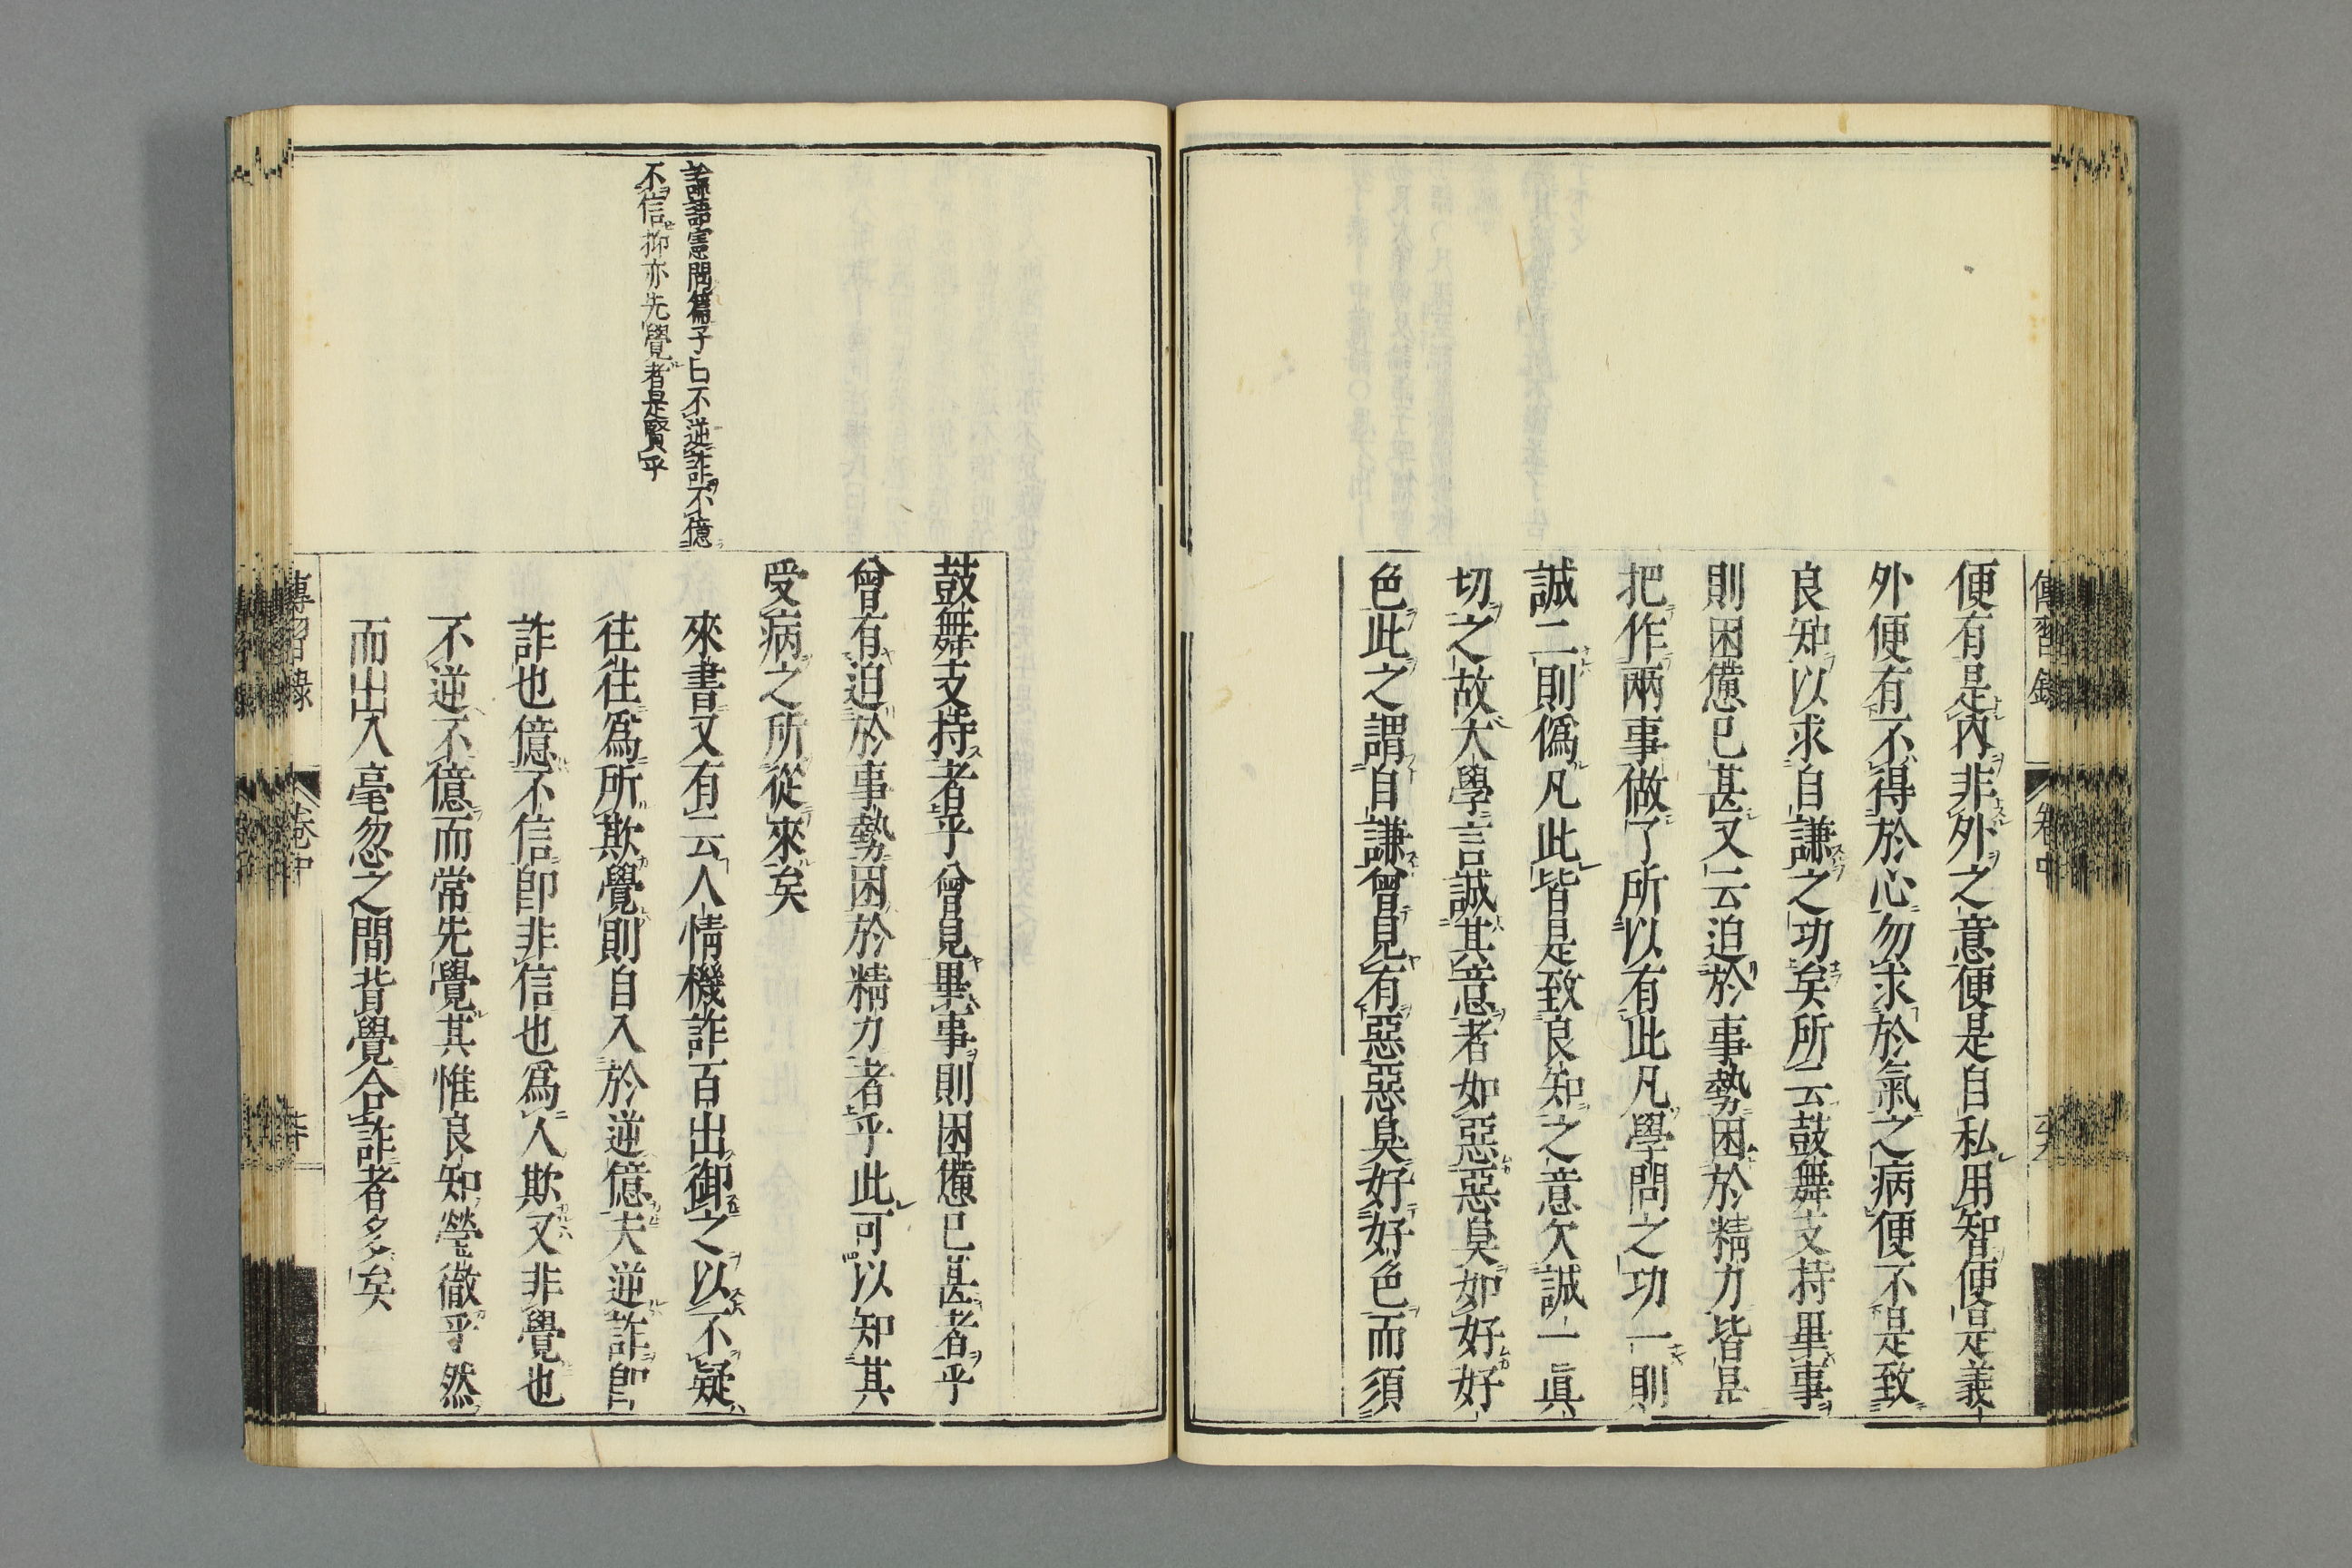 傳習錄
卷中
便有是內非外之意便是自私用智便是義
外便有不得於心勿求於氣之病便不是致
良知以求自謙之功矣所云鼓舞支持畢事
則困憊已甚又云迫於事勢困於精力皆是
把作兩事做了所以有此凡學問之功一則
誠二則僞凡此皆是致良知之意欠誠一眞
切之故大學言誠其意者如惡惡臭如好好
色此之謂自謙曾見有惡惡臭好好色而須
論語憲問篇子曰不逆詐不億
不信抑亦先覺者是賢乎
鼓舞支持者乎曾見畢事則困憊已甚者乎
曾有迫於事勢困於精力者乎此可以知其
受病之所從來矣
來書又有云人情機詐百出御之以不疑
往往爲所欺覺則自入於逆億夫逆詐卽
詐也億不信卽非信也爲人欺又非覺也
不逆不億而常先覺其惟良知瑩徹乎然
而出入毫忽之間背覺合詐者多矣
傳習錄
卷中